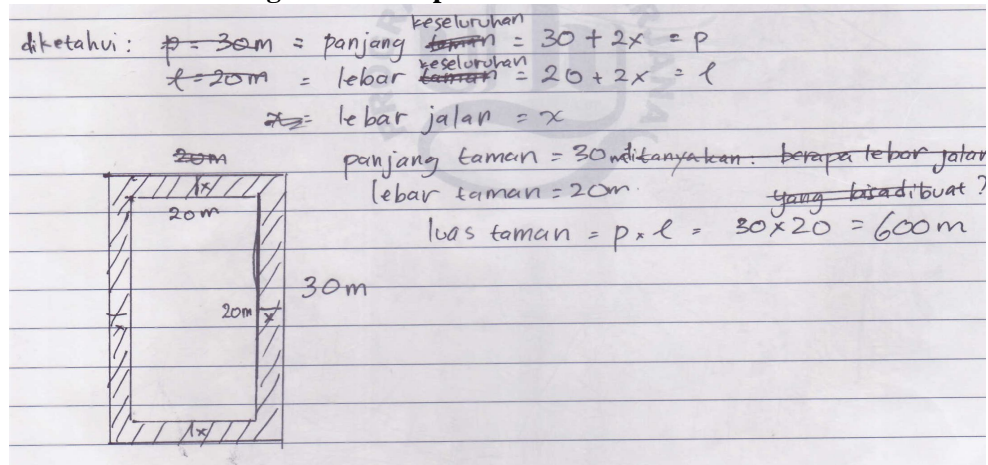 keseluruhan
diketahui : p = 30m = panjang taman = 30 + 2x = p
keseluruhan
l = 20m = lebar taman = 20 + 2x = l
x = lebar jalan = x
20m
panjang taman = 30m ditanyakan : berapa lebar jalan
lebar taman = 20m. yang bisa dibuat ?
luas taman = p x l = 30 x 20 = 600 m
x
20 m
30 m
20m x
x
x